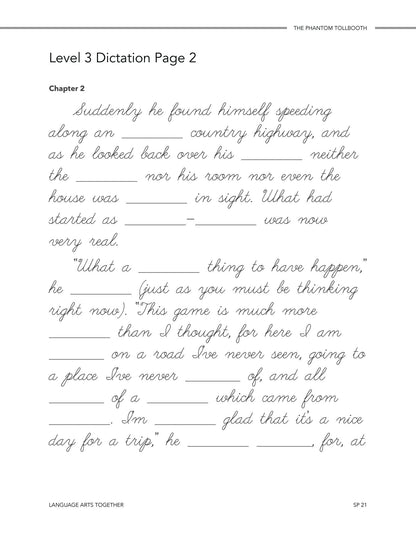 THE PHANTOM TOLLBOOTH
Level 3 Dictation Page 2
Chapter 2
Suddenly he found himself speeding
along an ________ country highway, and
as he looked back over his ________ neither
the ________ nor his room nor even the
house was ________ in sight. What had
started as ________-________ was now
very real.
"What a ________ thing to have happen,"
he ________ (just as you must be thinking
right now). "This game is much more
________ than I thought, for here I am
________ on a road I've never seen, going to
a place I've never ________ of, and all
________ of a ________ which came from
________. I'm ________ glad that it's a nice
day for a trip," he ________ ________, for, at
LANGUAGE ARTS TOGETHER
SP 21